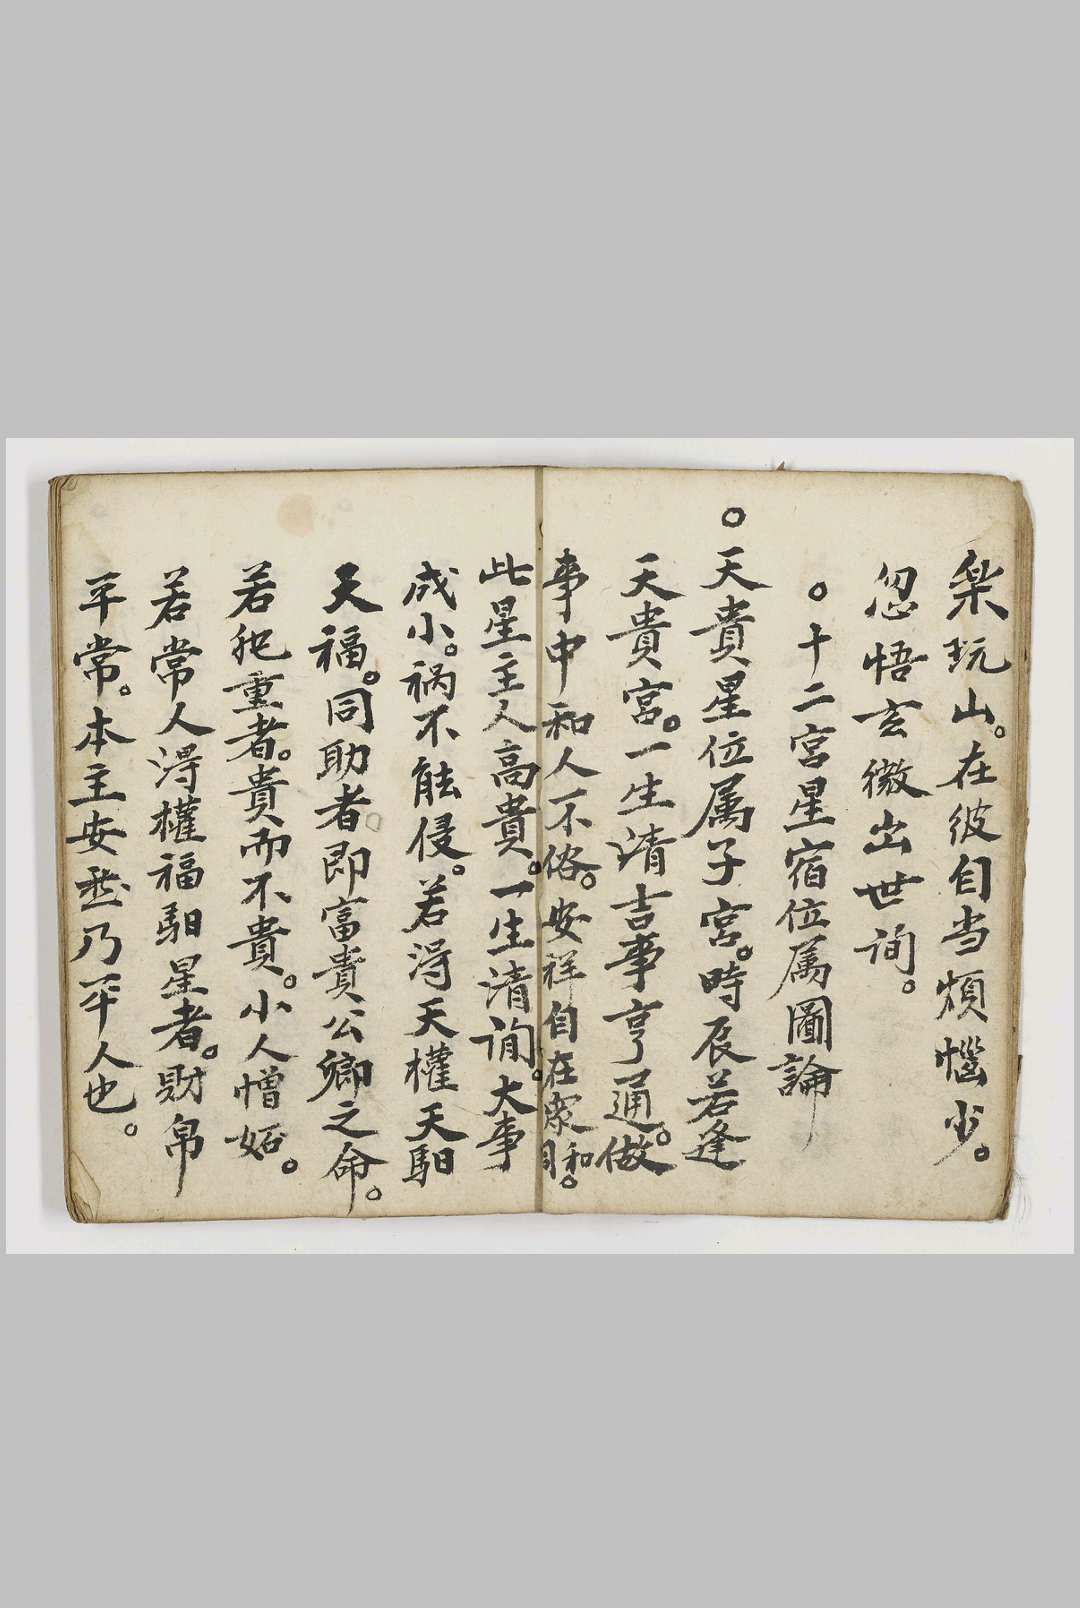 樂玩山。在彼自当煩惱少。
忽悟玄微出世詢。
。十二宮星宿位属圖論
。天貴星位属子宮。時辰若逢
天貴宮。一生清吉事亨通。做
事中和人不俗。安祥自在衆和。
此星主人高貴。一生清詢。大事
成小。祸不能侵。若淂天權天馹
天福。同助者。即富貴公卿之命。
若犯重者。貴而不貴。小人憎妬。
若常人淂權福馹星者。財帛
平常。本主安乃平人也。